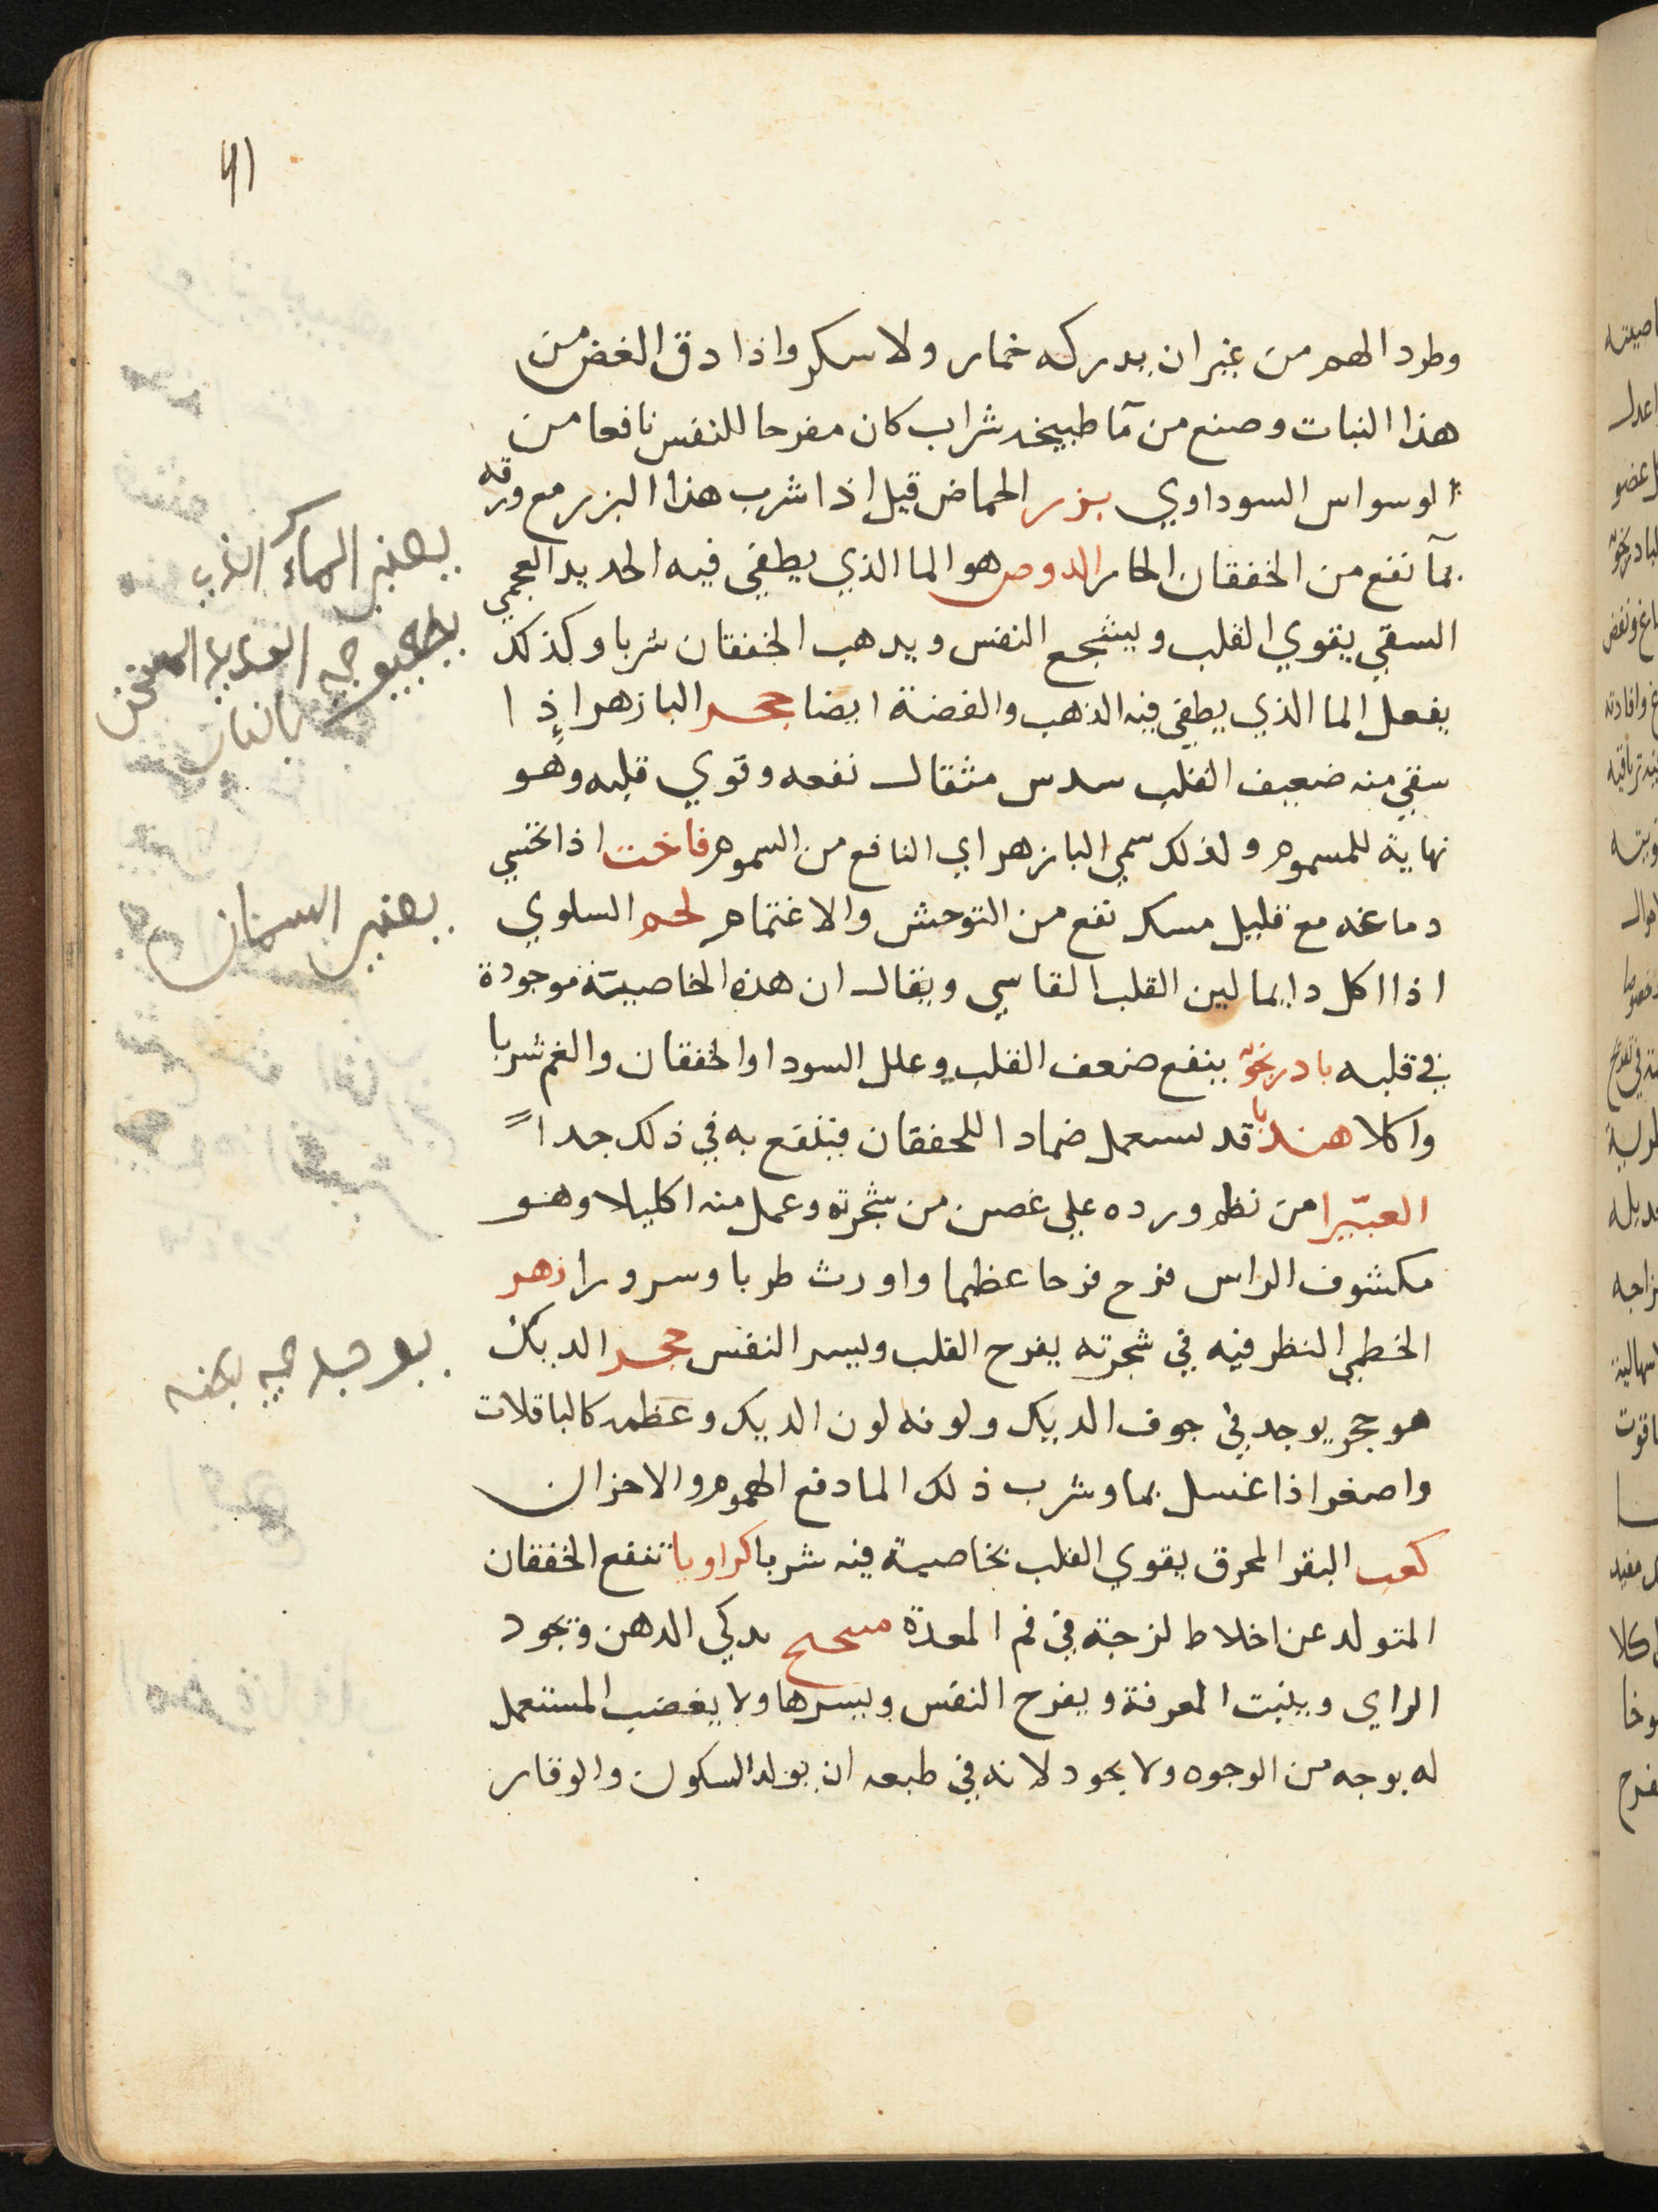 41
وطرد الهم من غير ان يدركه خمار ولا سكر واذا دق الغض من
هذا النبات وصنع من مآ طبيخه شراب كان مفرحا للنفس نافعا من
الوسواس السوداوي بزر الحماض قيل اذا شرب هذا البزر مع ورقه
بمآ نفع من الخفقان الحار الدوص هو الما الذي يطفي فيه الحديد العجمي
السقي يقوي القلب ويشجع النفس ويدهب الخفقان شربا وكذلك
يفعل الما الذي يطفي فيه الذهب والفضة ايضا حجر البازهر اذا
سقي منه ضعيف القلب سدس مثقال نفعه وقوي قلبه وهو
نهاية للمسموم ولذلك سمي البازهر اي النافع من السموم فاخت اذا تحسي
دماغه مع قليل مسك نفع من التوحش والاغتمام لحم السلوي
اذا اكل دايما لين القلب القاسي ويقال ان هذه الخاصيتة موجودة
في قلبه بادرنجو ينفع ضعف القلب وعلل السودا والخفقان والغم شربا
واكلا هندبا قد يستعمل ضمادا للخفقان فينفع به في ذلك جداً
الغبيرا من نظم ورده علي غصن من شجرته وعمل منه اكليلا وهو
مكشوف الراس فرح فرحا عظيما واورث طربا وسرورا زهر
الخطمي النظر فيه في شجرته يفرح القلب ويسر النفس حجر الديك
هو حجر يوجد في جوف الديك ولونه لون الديك وعظمه كالباقلات
واصغر اذا غسل بما وشرب ذلك الما دفع الهموم والاحزان
كعب البقر المحرق يقوي القلب بخاصية فيه شربا كراويا تنفع الخفقان
المتولد عن اخلاط لزجة في فم المعدة يدكي الدهن ويجود
الراي ويثبت المعرفة ويفرح النفس ويسرها ولا يغضب المستعمل
له بوجه من الوجوه ولا يحود لانه في طبعه ان يولد السكون والوقار
يعني الماء الذي
يعني السمان